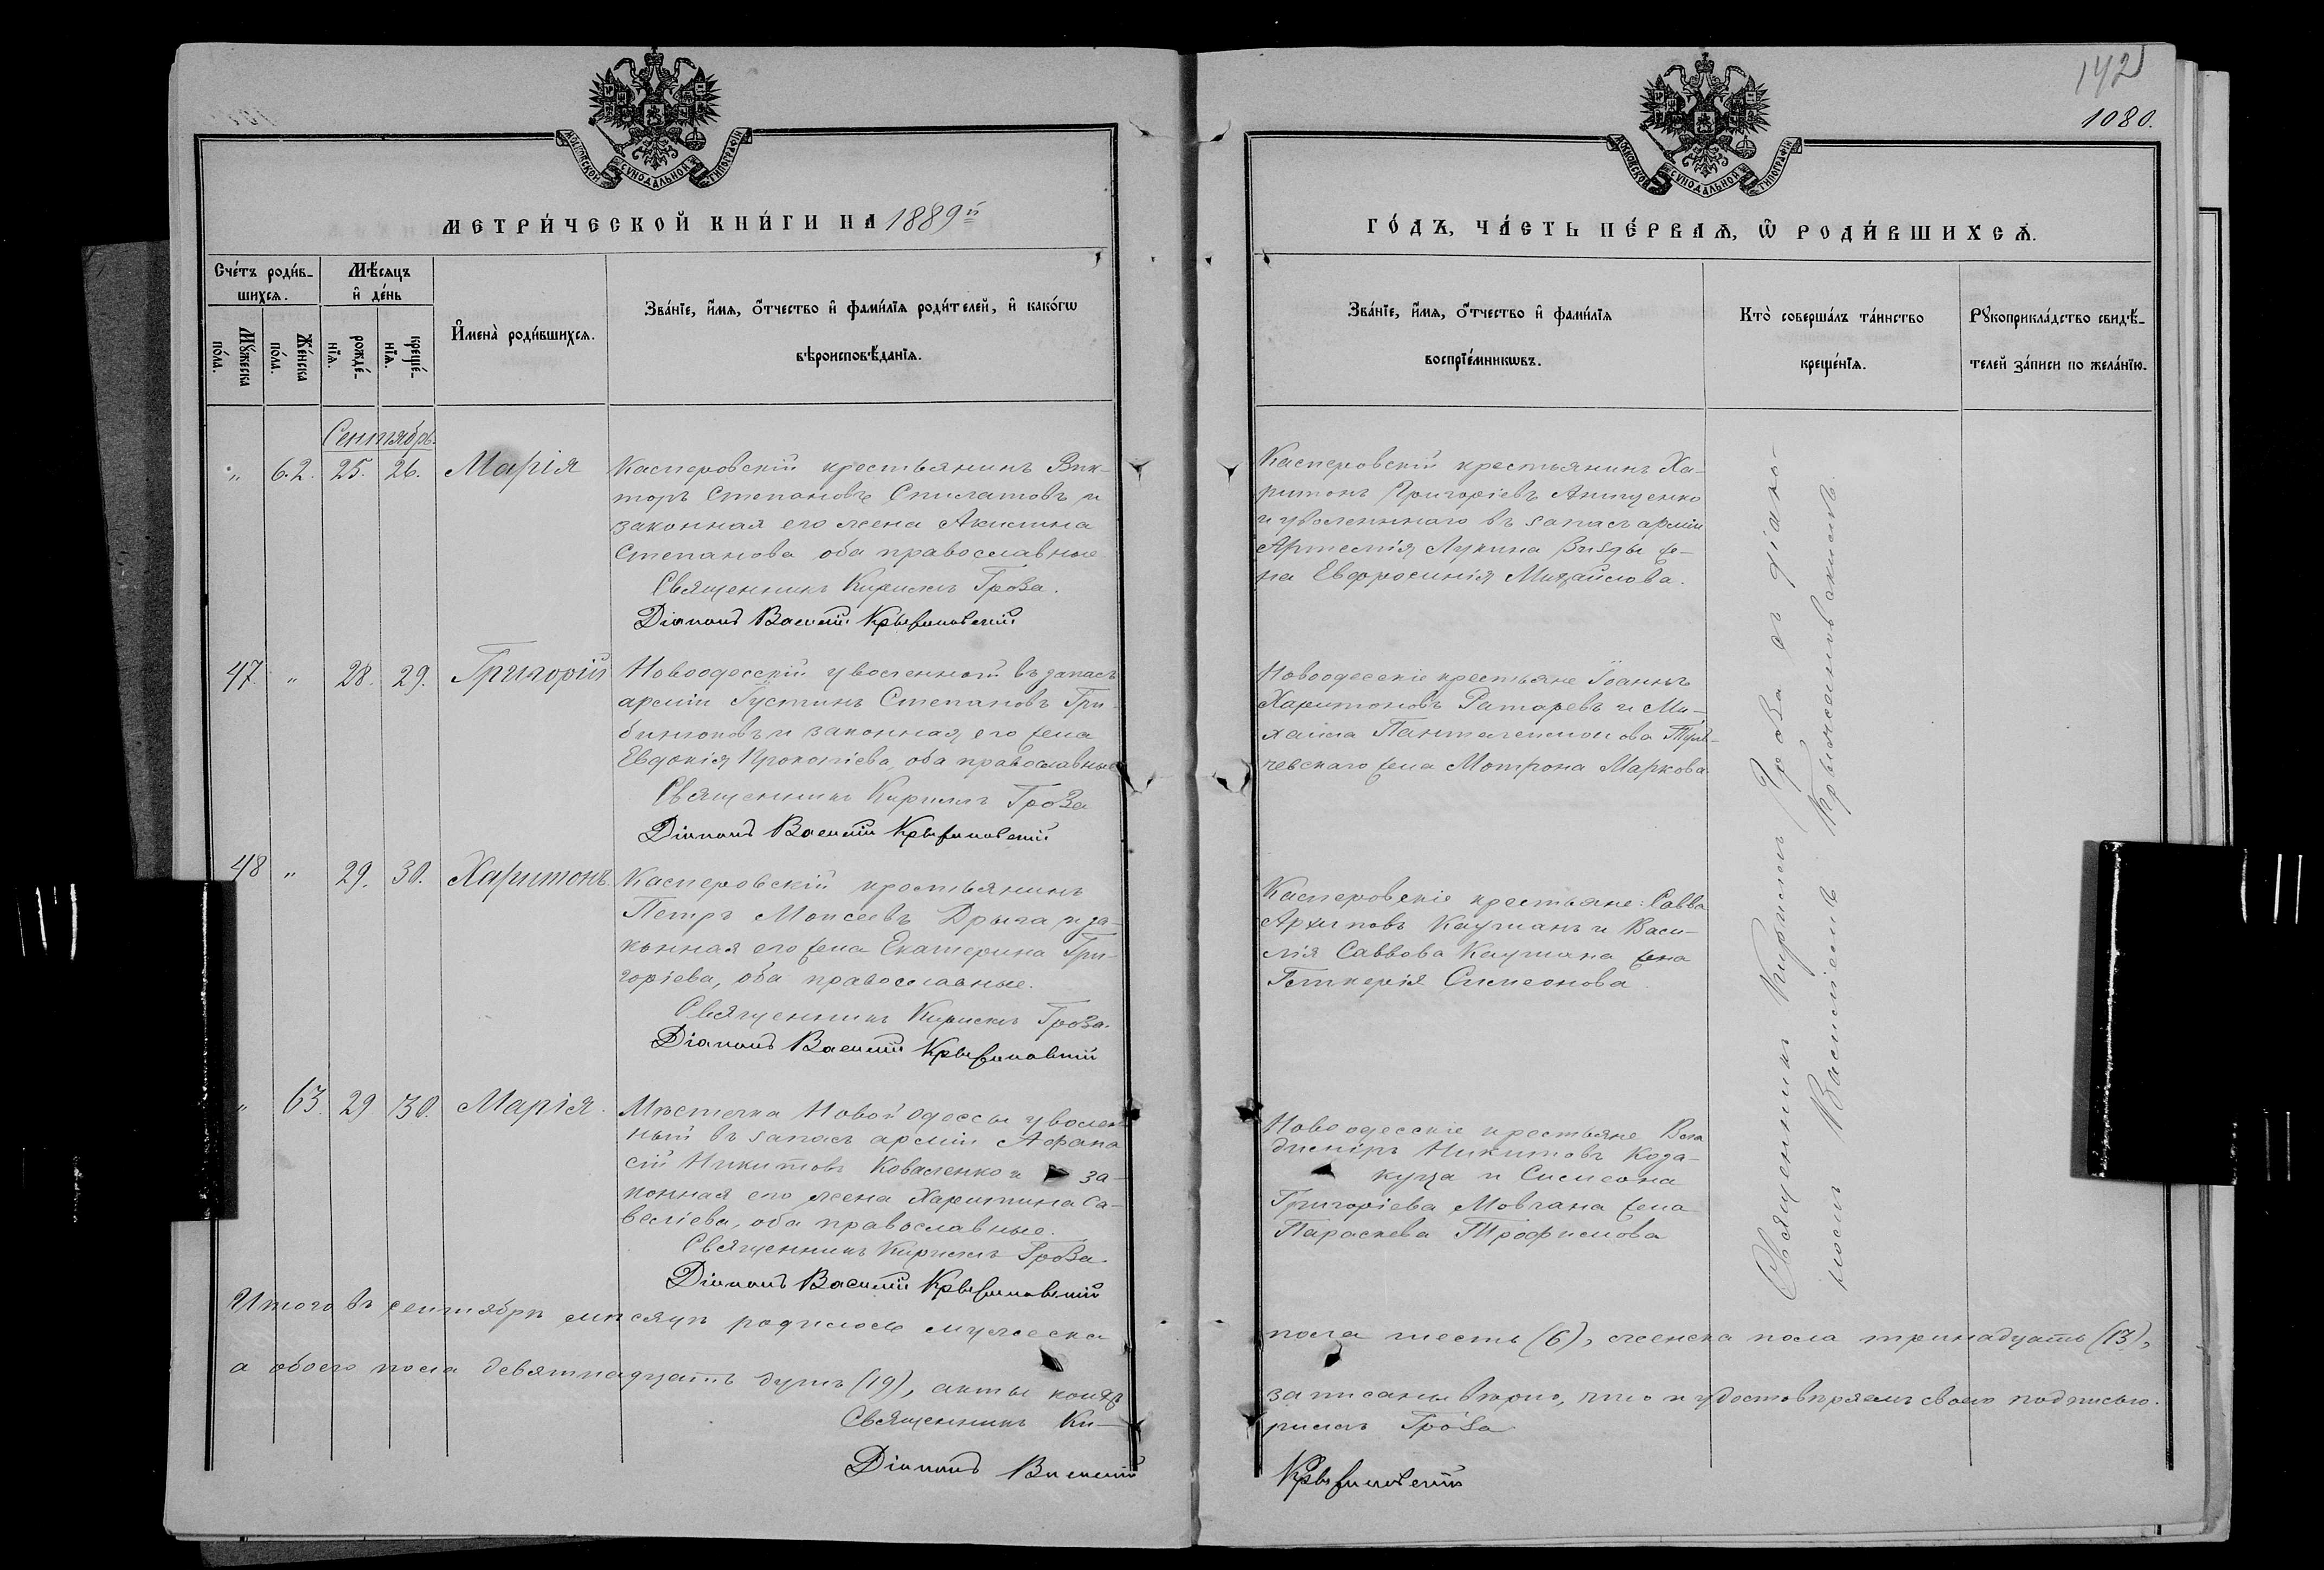 142
1080.
МОСКОВСКОЙ СѴНОДАЛЬНОЙ ТИПОГРАФІИ
МОСКОВСКОЙ СѴНОДАЛЬНОЙ ТИПОГРАФІИ
МЕТРИ́ЧЕСКОЙ КНИ́ГИ НА 1889й
ГО́ДЪ, ЧА́СТЬ ПЕ́РВАѦ, Ѡ РОДИ́ВШИХСѦ.
Сче́тъ роди́в-
шихсѧ.
Мꙋ́жеска по́ла.
Же́нска по́ла.
Мѣ́сѧцъ
и҆ де́нь
рожде́-
нїѧ.
креще́-
нїѧ.
И҆мена̀ роди́вшихсѧ.
Зва́нїе, и҆́мѧ, ѻ҆́тчество и҆ фами́лїѧ роди́телей, и҆ како́гѡ
вѣроисповѣ́данїѧ.
Зва́нїе, и҆́мѧ, ѻ҆́тчество и҆ фами́лїѧ
воспрїе́мникѡвъ.
Кто̀ соверша́лъ та́инство
креще́нїѧ.
Рꙋкоприкла́дство свидѣ́-
телей за́писи по жела́нїю.
Сентябрь.
" 62. 25. 26. Марія
Касперовскій крестьянинъ Вик-
торъ Степановъ и
законная его жена Акилина
Степанова оба православные
Священникъ Кириллъ Гроза.
Діаконъ Василій Крыжановскій
Касперовскій крестьянинъ Ха-
ритонъ Григоріевъ Анищенко
и уволеннаго въ запасъ арміи
Артемія Лукина же-
на Евфросинія Михайлова.
47. " 28. 29. Григорій
Новоодесскій уволенный въ запасъ
арміи Іустинъ Степановъ Гри-
бинюковъ и законная его жена
Евдокія Прокопіева, оба православные
Священникъ Кириллъ Гроза
Діаконъ Василій Крыжановскій
Новоодесскіе крестьяне Іоаннъ
Харитоновъ Ратаревъ и Ми-
хаила Пантелеимонова
чевскаго жена Мотрона Маркова.
48 " 29. 30. Харитонъ
Касперовскій крестьянинъ
Петръ Моисеевъ Дрыга и за-
конная его жена Екатерина Гри-
горіева, оба православные.
Священникъ Кириллъ Гроза.
Діаконъ Василій Крыжановскій
Касперовскіе крестьяне: Савва
Архиповъ Кауманъ и Васи-
лія Саввова Каумана жена
Гликерія Симеонова
" 63. 29 30. Марія.
Мѣстечка Новой Одессы уволен-
ный въ запасъ арміи Афана
сій Никитовъ Коваленко и за-
конная его жена Харитина Са-
веліева, оба православные.
Священникъ Кириллъ Гроза.
Діаконъ Василій Крыжановскій
Новоодесскіе крестьяне Вла
диміръ Никитовъ Коза-
куца и Симеона
Григоріева Мовчана жена
Параскева Трофимова
Священникъ Кириллъ Гроза съ діако-
номъ Василіемъ Крыжановскимъ.
Итого въ сентябрѣ мѣсяцѣ родилось мужеска
пола шесть (6), женска пола тринадцать (13),
а обоего пола девятнадцать душъ (19), акты коихъ
записаны вѣрно, что и удостовѣряемъ своею подписью.
Священникъ Ки-
риллъ Гроза
Діаконъ Василій
Крыжановскій